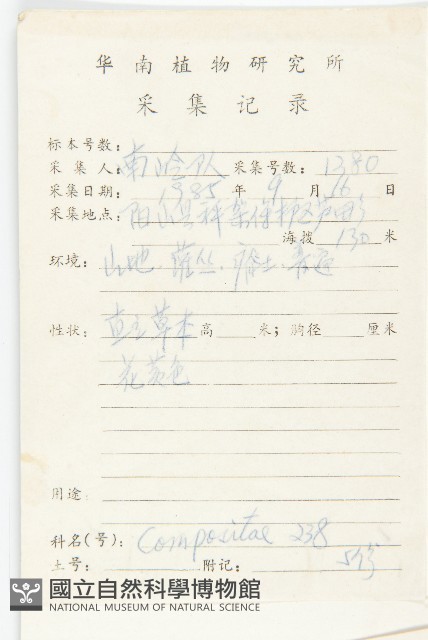 华南植物研究所
采集记录
标本号数：
采集人：南岭队 采集号数：1380
采集日期：1985年9月16日
采集地点：阳山县秤架保护区
海拨130米
环境：山地.灌丛.
性状：直立草本高 米；胸径 厘米
花黄色
用途
科名(号)：Compositae 238
土号： 附记：5份
國立自然科學博物館
NATIONAL MUSEUM OF NATURAL SCIENCE